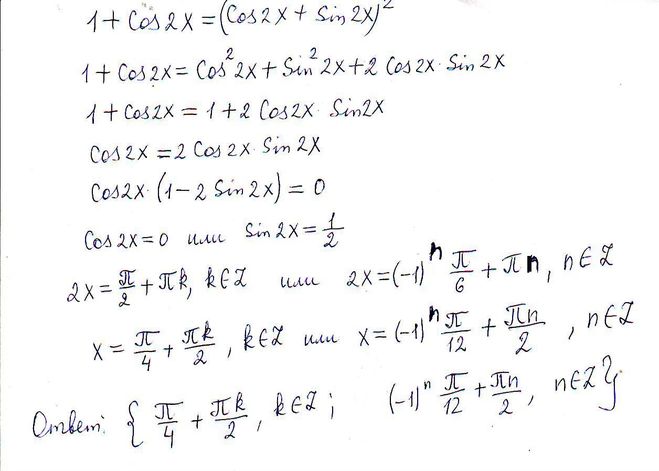 1 + Cos 2x = (Cos 2x + Sin 2x)²
1 + Cos 2x = Cos² 2x + Sin² 2x + 2 Cos 2x · Sin 2x
1 + Cos 2x = 1 + 2 Cos 2x · Sin 2x
Cos 2x = 2 Cos 2x · Sin 2x
Cos 2x · (1 - 2 Sin 2x) = 0
Cos 2x = 0 или Sin 2x = 1/2
2x = π/2 + πk, k∈Z или 2x = (-1)ⁿ π/6 + πn, n∈Z
x = π/4 + πk/2, k∈Z или x = (-1)ⁿ π/12 + πn/2, n∈Z
Ответ: { π/4 + πk/2, k∈Z; (-1)ⁿ π/12 + πn/2, n∈Z }